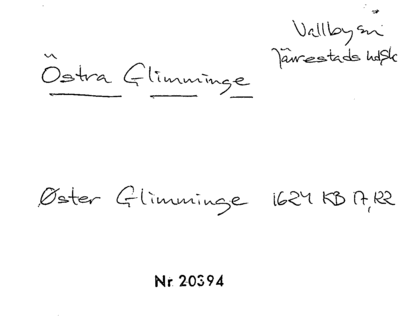 Vallby sn
Järrestads hd Sk
Östra Glimminge
Øster Glimminge 1624 KB 17, R2
Nr 20394